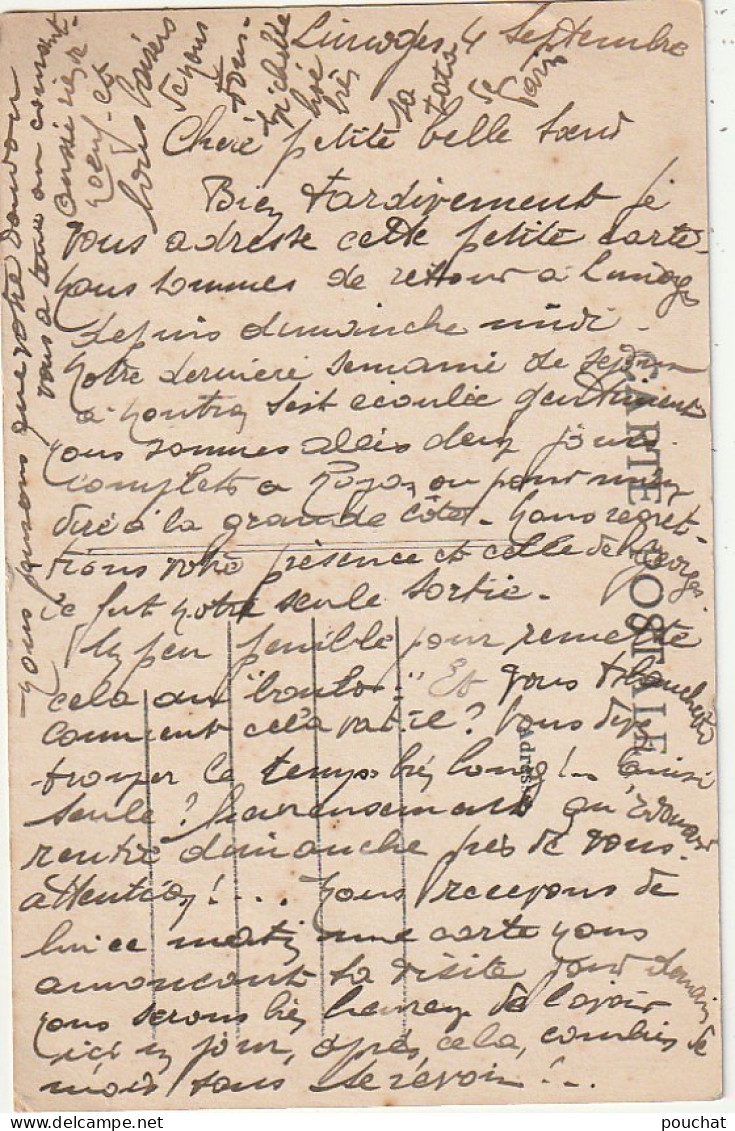 Limoges 4 Septembre
Chère petite belle sœur
Bien tardivement je
vous adresse cette petite carte.
nous sommes de retour à Limoges
depuis dimanche midi.
Notre dernière semaine de séjour
à s'est écoulée gentiment
nous sommes allés deux jours
complets à Royan ou pour mieux
dire à la grande côte. Nous regret-
tions votre présence et celle de Georges.
ce fut notre seule sortie.
Un peu pénible pour remettre
cela au "boulot". Et vous Blanchette
comment cela va-t-il? Vous devez
trouver le temps bien long!.. ainsi
seule? heureusement qu'Edouard
rentre dimanche près de vous.
attention!... Nous recevons de
lui ce matin une carte nous
annonçant sa visite pour demain,
nous serons bien heureux de l'avoir
ici un jour, après cela, combien de
mois sans se revoir!..
nous pensons que votre Doudou
vous a tenue au courant
aussi rien
neuf et
bons baisers
de nous
tous.
Michelle
bisé
très
sa
tata
de
Paris
CARTE POSTALE
Adresse
pouchat